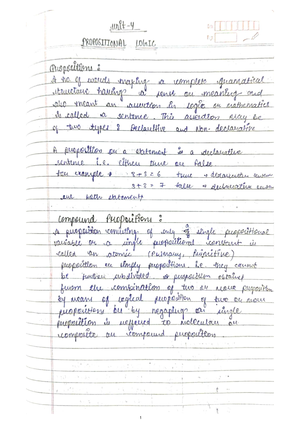 Unit-4
PROPOSITIONAL LOGIC
Propositions :
A no of words making a complete grammatical
structure having a sense or meaning and
also meant an assertion in logic or mathematics
is called a sentence. This assertion may be
of two types : Declarative and Non declarative
A proposition or a statement is a declarative
sentence i.e. either true or false
for example • 3+3=6 true → declarative
3+3=7 false → declarative
are both statements
Compound Propositions :
A proposition consisting of only of single propositional
variable or a single propositional constant is
called an atomic (Primary, Primitive)
proposition or simply proposition. i.e they cannot
be further A proposition obtained
from the combination of two or more proposition
by means of logical proposition of two or more
propositions or by negating or single
proposition is referred to molecular or
composite or compound proposition.
1